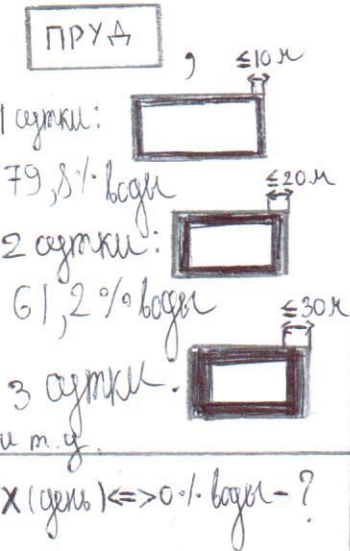 ПРУД
, ≤10 м
1 сутки:
79,8% воды
≤20 м
2 сутки:
61,2% воды
≤30 м
3 сутки.
и т.д.
X (день) <=> 0% воды - ?